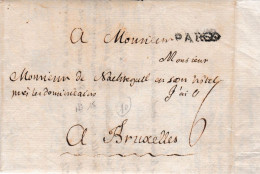 A Monsieur PARIS
Monsieur
Monsieur de Nachtegael en son hotel
près les dominicains
A Bruxelles